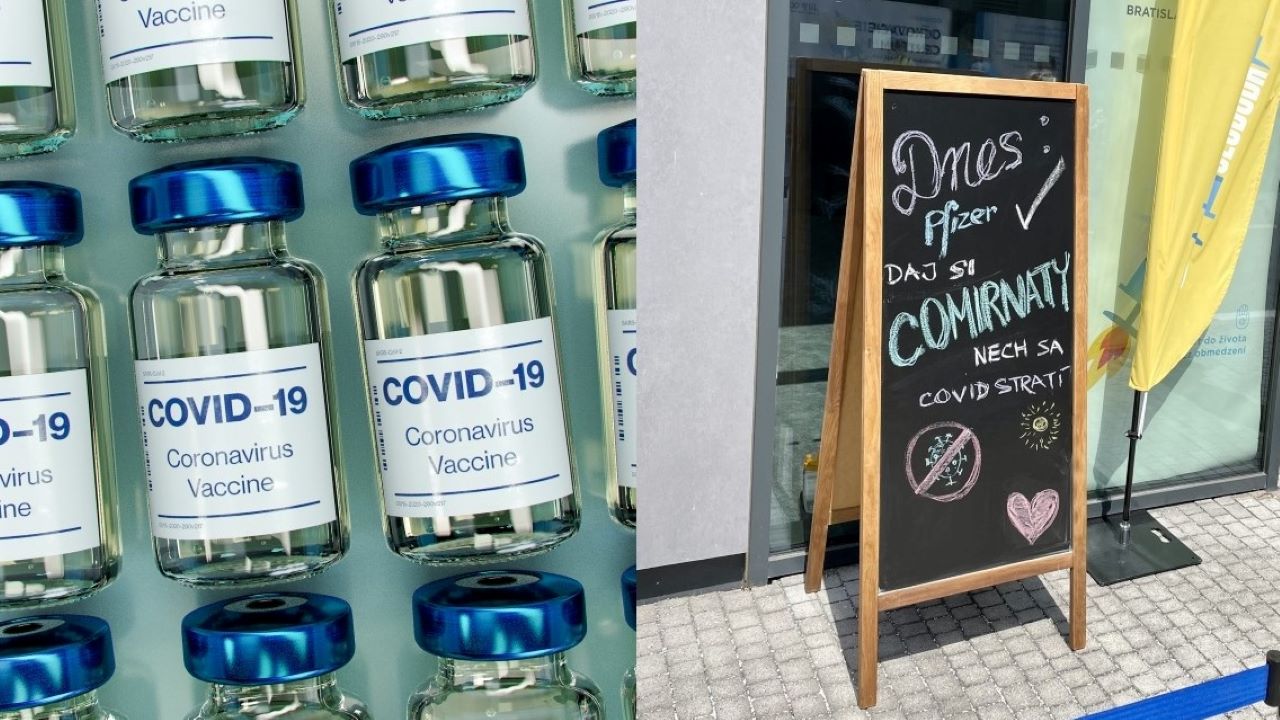 Vaccine
COVID-19
Coronavirus
Vaccine
COVID-19
Coronavirus
Vaccine
-19
virus
ine
BRATISL
Dnes:
Pfizer ✓
DAJ SI
COMIRNATY
NECH SA
COVID STRATÍ
do života
obmedzení